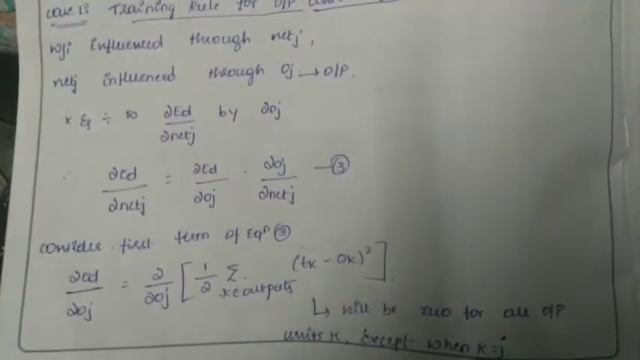 Case 1: Training Rule for O/P
wji influenced through netj,
netj influenced through Oj → O/P.
× & ÷ ∂Ed/∂netj by ∂oj
∴ ∂Ed/∂netj = ∂Ed/∂oj · ∂oj/∂netj —③
Consider first term of Eqn ③
∂Ed/∂oj = ∂/∂oj [ 1/2 Σ k∈outputs (tk - ok)² ]
↳ will be zero for all O/P
units k, except when k=j